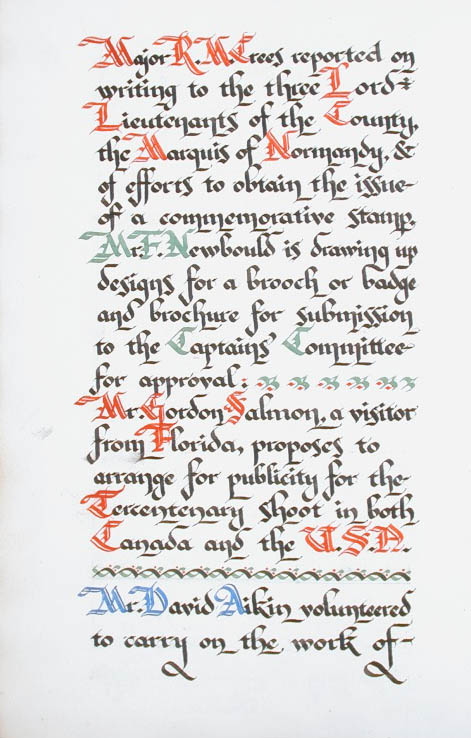 Major R. M. Crees reported on
writing to the three Lord
Lieutenants of the County,
the Marquis of Normandy, &
of efforts to obtain the issue
of a commemorative stamp.
Mr. F. Newbould is drawing up
designs for a brooch or badge
and brochure for submission
to the Captains' Committee
for approval:
Mr. Gordon Salmon, a visitor
from Florida, proposes to
arrange for publicity for the
Tercentenary shoot in both
Canada and the U.S.A.
Mr. David Aikin volunteered
to carry on the work of